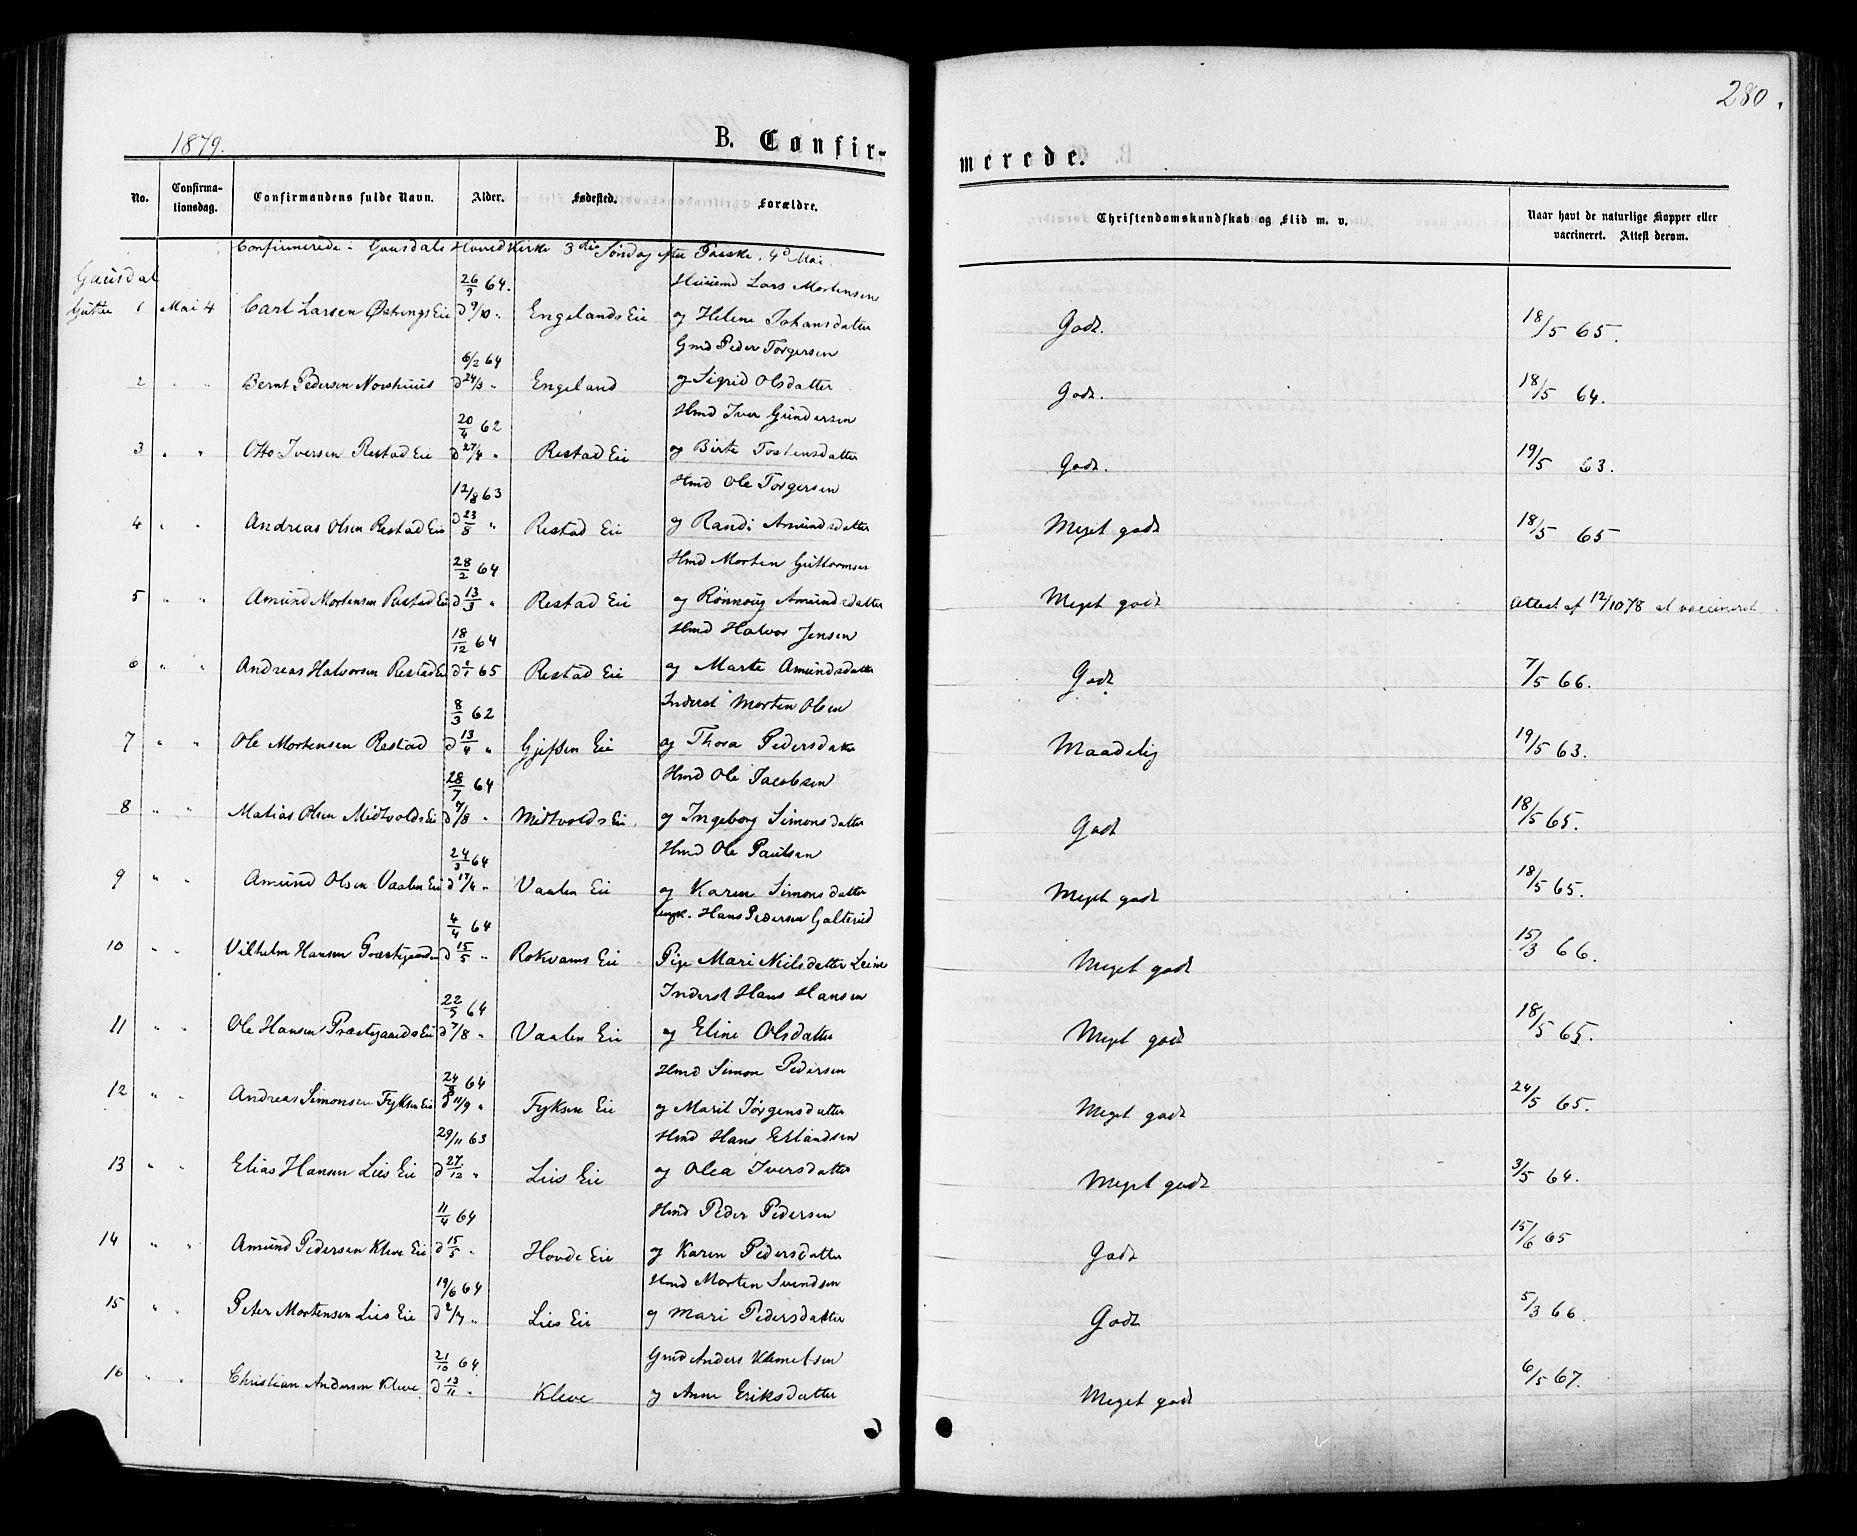 280.
1879.
B. Confir-
merede.
No. Confirma-tionsdag. Confirmandens fulde Navn. Alder. Fødested. Forældre. Christendomskundskab og Flid m. v. Naar havt de naturlige Kopper eller vaccineret. Attest derom.
Confirmerede i Gausdals Hovedkirke 3die Søndag efter Paaske, 4de Mai.
Gausdal
26/9 64. Huusmd Lars Mortensen
Gutter 1 Mai 4 Carl Larsen Østrengs Eie d 9/10 " Engelands Eie og Helene Johansdatter Godt. 18/5 65.
6/2 64 Gmd Peder Torgersen
2 " " Bernt Pedersen Norshuus d 24/3 " Engeland og Sigrid Olsdatter Godt. 18/5 64.
20/4 62 Hmd Iver Gundersen
3 " " Otto Iversen Restad Eie d 27/4 " Restad Eie og Birte Tostensdatter Godt. 19/5 63.
12/8 63 Hmd Ole Torgersen
4 " " Andreas Olsen Restad Eie d 23/8 " Restad Eie og Randi Amundsdatter Meget godt 18/5 65
28/2 64 Hmd Morten Guttormsen
5 " " Amund Mortensen Restad Eie d 13/3 " Restad Eie og Rønnoug Amundsdatter Meget godt Attest af 12/10 78 at vaccineret
18/12 64 Hmd Halvor Jensen
6 " " Andreas Halvorsen Restad Eie d 1/1 65 Restad Eie og Marte Amundsdatter Godt 7/5 66.
8/3 62 Inderst Morten Olsen
7 " " Ole Mortensen Restad d 13/4 " Gjefsen Eie og Thora Pedersdatter Maadelig 19/5 63.
28/7 64 Hmd Ole Jacobsen
8 " " Matias Olsen Midtvolds Eie d 7/8 " Midtvolds Eie og Ingeborg Simonsdatter Godt 18/5 65.
24/3 64 Hmd Ole Paulsen
9 " " Amund Olsen Vaalen Eie d 17/4 " Vaalen Eie og Karen Simonsdatter Meget godt 18/5 65.
4/4 64 Ungk. Hans Pedersen Galterud
10 " " Vilhelm Hansen Præstegaarden d 15/5 " Rokvams Eie Pige Mari Nielsdatter Leine Meget godt 15/3 66.
22/5 64 Inderst Hans Hansen
11 " " Ole Hansen Præstgaards Eie d 7/8 " Vaalen Eie og Eline Olsdatter Meget godt 18/5 65.
24/8 64 Hmd Simon Pedersen
12 " " Andreas Simonsen Fyksen Eie d 11/9 " Fyksen Eie og Marit Jørgensdatter Meget godt 24/5 65.
29/11 63 Hmd Hans Erlandsen
13 " " Elias Hansen Liis Eie d 27/12 " Liis Eie og Olea Iversdatter Meget godt 3/5 64.
11/4 64 Hmd Peder Pedersen
14 " " Amund Pedersen Kleve Eie d 15/5 " Hovde Eie og Karen Pedersdatter Godt 15/6 65
19/6 64 Hmd Morten Svendsen
15 " " Peter Mortensen Liis Eie d 2/7 " Liis Eie og Mari Pedersdatter Godt 5/3 66.
21/10 64 Gmd Anders Klemetsen
16 " " Christian Andersen Kleve d 13/11 " Kleve og Anne Eriksdatter Meget godt 6/5 67.